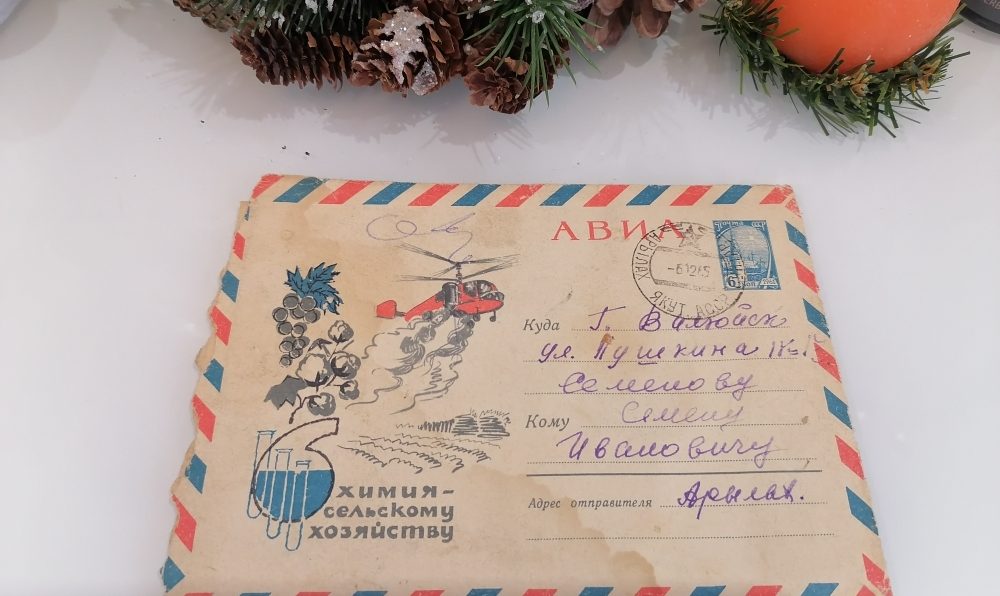 АВИА
Почта СССР
6
АРЫЛАХ
-61265
ЯКУТ. АССР
Куда Г. Вилюйск
ул. Пушкина
Семенову
Кому Семену
Ивановичу
Адрес отправителя Арылах.
ХИМИЯ-
СЕЛЬСКОМУ
ХОЗЯЙСТВУ